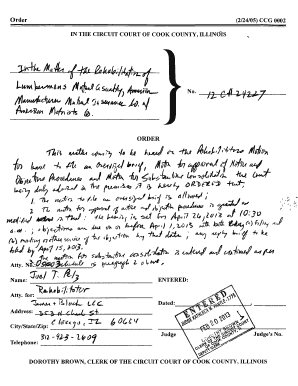 Order (2/24/05) CCG 0002
IN THE CIRCUIT COURT OF COOK COUNTY, ILLINOIS
In the Matter of the Rehabilitation of
Lumbermens Mutual Casualty, American
Manufacturers Mutual Insurance Co. &
American Motorists Co.
No. 12 CH 24227
ORDER
This matter coming to be heard on the Rehabilitator's Motion
for leave to file an oversized brief, Motion for approval of Notice and
Objection Procedures and Motion for Substantive Consolidation the Court
being duly advised in the premises it is hereby ORDERED that,
1. The motion to file an oversized brief is allowed;
2. The motion for approval of notice and objection procedures is granted as
modified in that: the hearing is set for April 26, 2013 at 10:30
a.m.; objections are due on or before April 1, 2013 with both
(b) mailing of the objection by that date; any reply brief to be
filed by April 15, 2013.
motion for substantive consolidation is entered and continued as per
Atty. No. schedule in paragraph 2 above.
Name: Joel T. Pelz
ENTERED:
Atty. for: Rehabilitator
Jenner & Block LLC
Address: 353 N Clark St
Dated:
City/State/Zip: Chicago, IL 60654
Telephone: 312-923-2609
Judge Judge's No.
ENTERED
FEB 20 2013
DOROTHY BROWN, CLERK OF THE CIRCUIT COURT OF COOK COUNTY, ILLINOIS